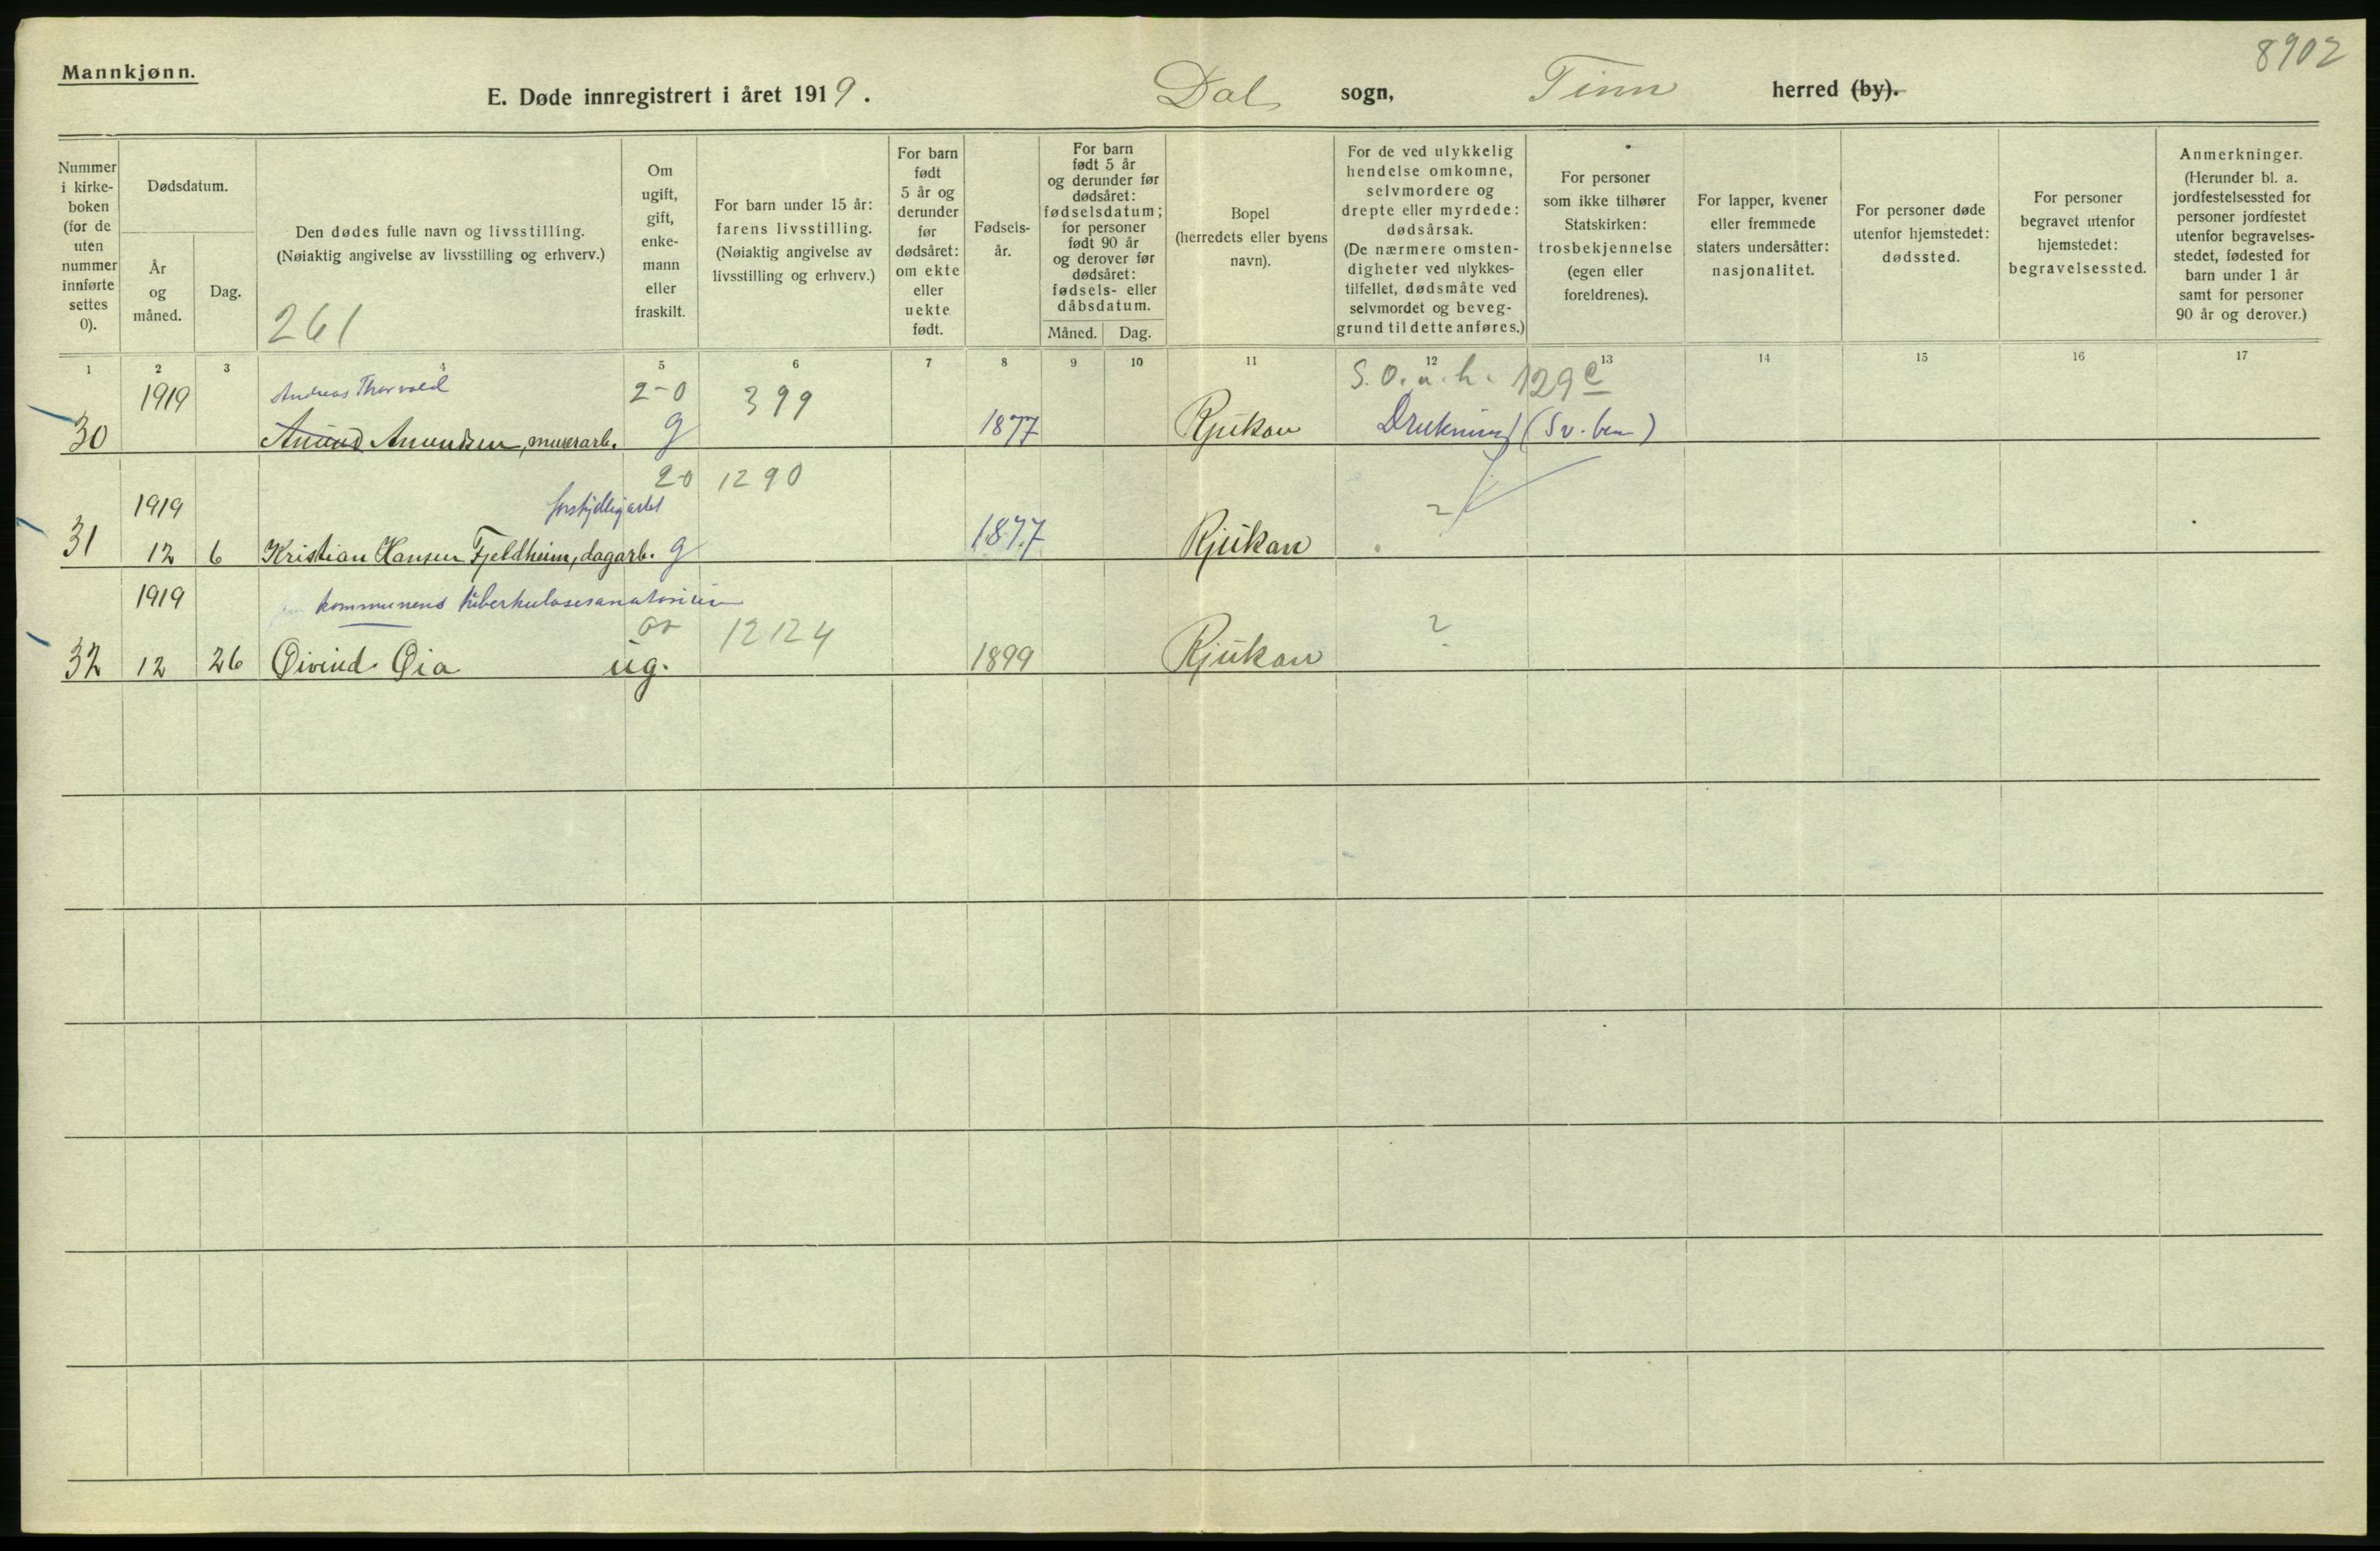 8902
Mannkjønn.
E. Døde innregistrert i året 1919. Dal sogn, Tinn herred (by).
Nummer i kirkeboken (for de uten nummer innførte settes 0).
Dødsdatum.
År og måned.
Dag.
Den dødes fulle navn og livsstilling.
(Nøiaktig angivelse av livsstilling og erhverv.)
261
Om ugift, gift, enkemann eller fraskilt.
For barn under 15 år: farens livsstilling.
(Nøiaktig angivelse av livsstilling og erhverv.)
For barn født 5 år og derunder før dødsåret: om ekte eller uekte født.
Fødselsår.
For barn født 5 år og derunder før dødsåret: fødselsdatum; for personer født 90 år og derover før dødsåret: fødsels- eller dåbsdatum.
Måned. Dag.
Bopel (herredets eller byens navn).
For de ved ulykkelig hendelse omkomne, selvmordere og drepte eller myrdede: dødsårsak.
(De nærmere omstendigheter ved ulykkestilfellet, dødsmåte ved selvmordet og beveggrund til dette anføres.)
For personer som ikke tilhører Statskirken: trosbekjennelse (egen eller foreldrenes).
For lapper, kvener eller fremmede staters undersåtter: nasjonalitet.
For personer døde utenfor hjemstedet: dødssted.
For personer begravet utenfor hjemstedet: begravelsessted.
Anmerkninger.
(Herunder bl. a. jordfestelsessted for personer jordfestet utenfor begravelsesstedet, fødested for barn under 1 år samt for personer 90 år og derover.)
1 2 3 4 5 6 7 8 9 10 11 12 13 14 15 16 17
1919 Andreas Thorvald 2-0 399 S. O. u. h. 129 e
30 Anund Anundsen, murerarb. g 1877 Rjukan Drukning (Sv. ben)
20 1290
1919 forskjellig arbd
31 12 6 Kristian Hansen Fjeldheim, dagarb. g 1877 Rjukan ?
1919 kommunens tuberkulosesanatorium
or 12124 ?
32 12 26 Øivind Øia ug. 1899 Rjukan